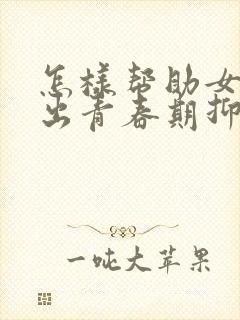 怎样帮助女
出青春期抑
一吨大苹果